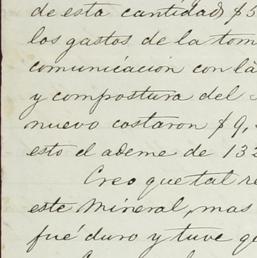 de esta cantidad $5
los gastos de la tom
comunicación con la
y compostura del
nuevo costaron $9,
esto el ademe de 13
Creo que tal re
este Mineral, mas
fué duro y tuve q